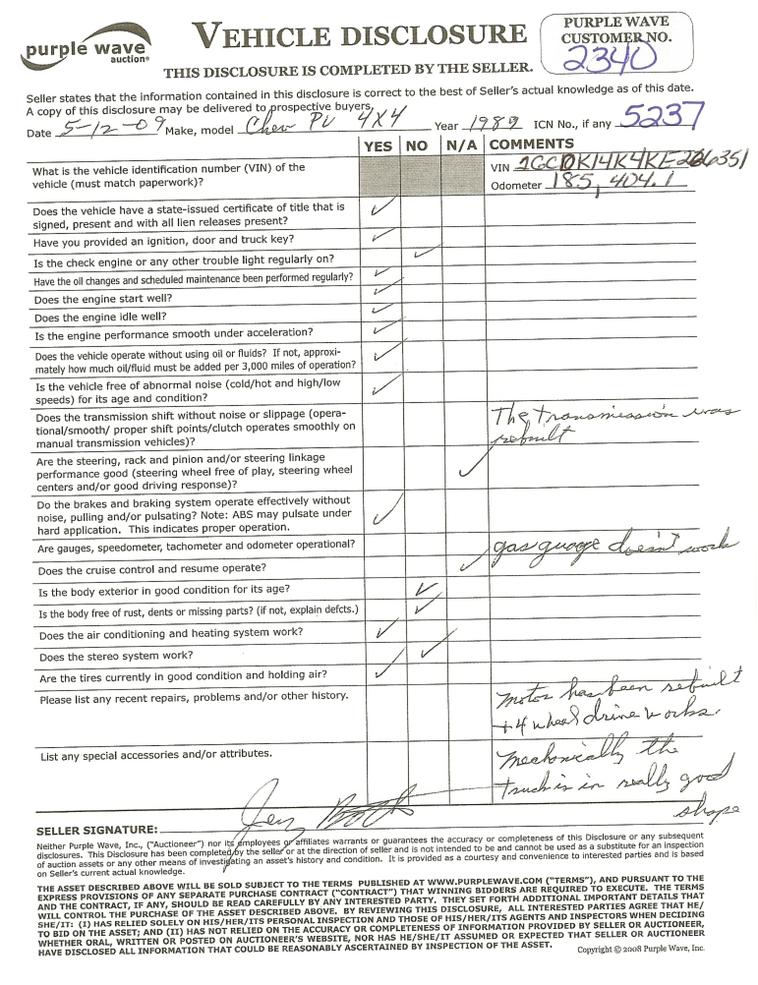 purple wave
auction®
VEHICLE DISCLOSURE
THIS DISCLOSURE IS COMPLETED BY THE SELLER.
PURPLE WAVE
CUSTOMER NO.
2340
Seller states that the information contained in this disclosure is correct to the best of Seller's actual knowledge as of this date.
A copy of this disclosure may be delivered to prospective buyers.
Date 5-12-09 Make, model Chev PU 4X4 Year 1989 ICN No., if any 5237
YES NO N/A COMMENTS
What is the vehicle identification number (VIN) of the
vehicle (must match paperwork)?
VIN
Odometer 185,404.1
Does the vehicle have a state-issued certificate of title that is
signed, present and with all lien releases present?
Have you provided an ignition, door and truck key?
Is the check engine or any other trouble light regularly on?
Have the oil changes and scheduled maintenance been performed regularly?
Does the engine start well?
Does the engine idle well?
Is the engine performance smooth under acceleration?
Does the vehicle operate without using oil or fluids? If not, approxi-
mately how much oil/fluid must be added per 3,000 miles of operation?
Is the vehicle free of abnormal noise (cold/hot and high/low
speeds) for its age and condition?
Does the transmission shift without noise or slippage (opera-
tional/smooth/ proper shift points/clutch operates smoothly on
manual transmission vehicles)?
The transmission was
rebuilt
Are the steering, rack and pinion and/or steering linkage
performance good (steering wheel free of play, steering wheel
centers and/or good driving response)?
Do the brakes and braking system operate effectively without
noise, pulling and/or pulsating? Note: ABS may pulsate under
hard application. This indicates proper operation.
Are gauges, speedometer, tachometer and odometer operational?
gas guage doesn't work
Does the cruise control and resume operate?
Is the body exterior in good condition for its age?
Is the body free of rust, dents or missing parts? (if not, explain defcts.)
Does the air conditioning and heating system work?
Does the stereo system work?
Are the tires currently in good condition and holding air?
Please list any recent repairs, problems and/or other history.
Motor has been rebuilt
+ 4 wheel drive works.
List any special accessories and/or attributes.
Mechonically the
truck is in really good
shape
SELLER SIGNATURE:
Neither Purple Wave, Inc., ("Auctioneer") nor its employees or affiliates warrants or guarantees the accuracy or completeness of this Disclosure or any subsequent
disclosures. This Disclosure has been completed by the seller or at the direction of seller and is not intended to be and cannot be used as a substitute for an inspection
of auction assets or any other means of investigating an asset's history and condition. It is provided as a courtesy and convenience to interested parties and is based
on Seller's current actual knowledge.
THE ASSET DESCRIBED ABOVE WILL BE SOLD SUBJECT TO THE TERMS PUBLISHED AT WWW.PURPLEWAVE.COM ("TERMS"), AND PURSUANT TO THE
EXPRESS PROVISIONS OF ANY SEPARATE PURCHASE CONTRACT ("CONTRACT") THAT WINNING BIDDERS ARE REQUIRED TO EXECUTE. THE TERMS
AND THE CONTRACT, IF ANY, SHOULD BE READ CAREFULLY BY ANY INTERESTED PARTY. THEY SET FORTH ADDITIONAL IMPORTANT DETAILS THAT
WILL CONTROL THE PURCHASE OF THE ASSET DESCRIBED ABOVE. BY REVIEWING THIS DISCLOSURE, ALL INTERESTED PARTIES AGREE THAT HE/
SHE/IT: (I) HAS RELIED SOLELY ON HIS/HER/ITS PERSONAL INSPECTION AND THOSE OF HIS/HER/ITS AGENTS AND INSPECTORS WHEN DECIDING
TO BID ON THE ASSET; AND (II) HAS NOT RELIED ON THE ACCURACY OR COMPLETENESS OF INFORMATION PROVIDED BY SELLER OR AUCTIONEER,
WHETHER ORAL, WRITTEN OR POSTED ON AUCTIONEER'S WEBSITE, NOR HAS HE/SHE/IT ASSUMED OR EXPECTED THAT SELLER OR AUCTIONEER
HAVE DISCLOSED ALL INFORMATION THAT COULD BE REASONABLY ASCERTAINED BY INSPECTION OF THE ASSET.
Copyright © 2008 Purple Wave, Inc.